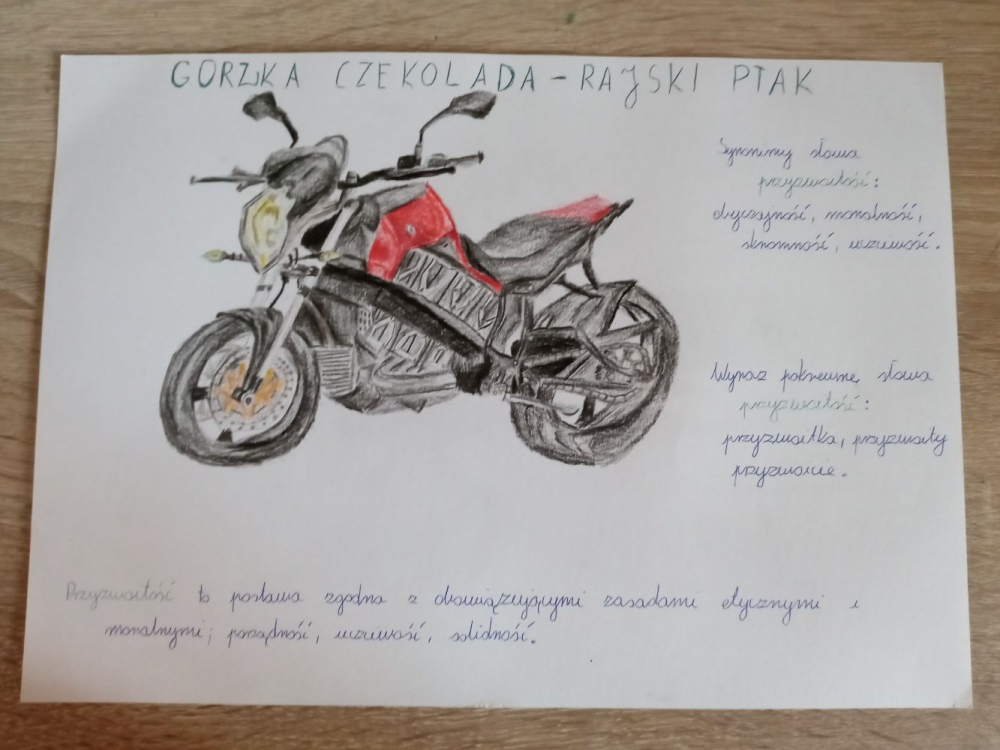 GORZKA CZEKOLADA - RAJSKI PTAK
Synonimy słowa
przyzwoitość:
obyczajność, moralność,
skromność, uczciwość.
Wyraz pokrewne słowa
przyzwoitość:
przyzwoitka, przyzwoity
przyzwoicie.
Przyzwoitość to postawa zgodna z obowiązującymi zasadami etycznymi i
moralnymi; porządność, uczciwość, solidność.